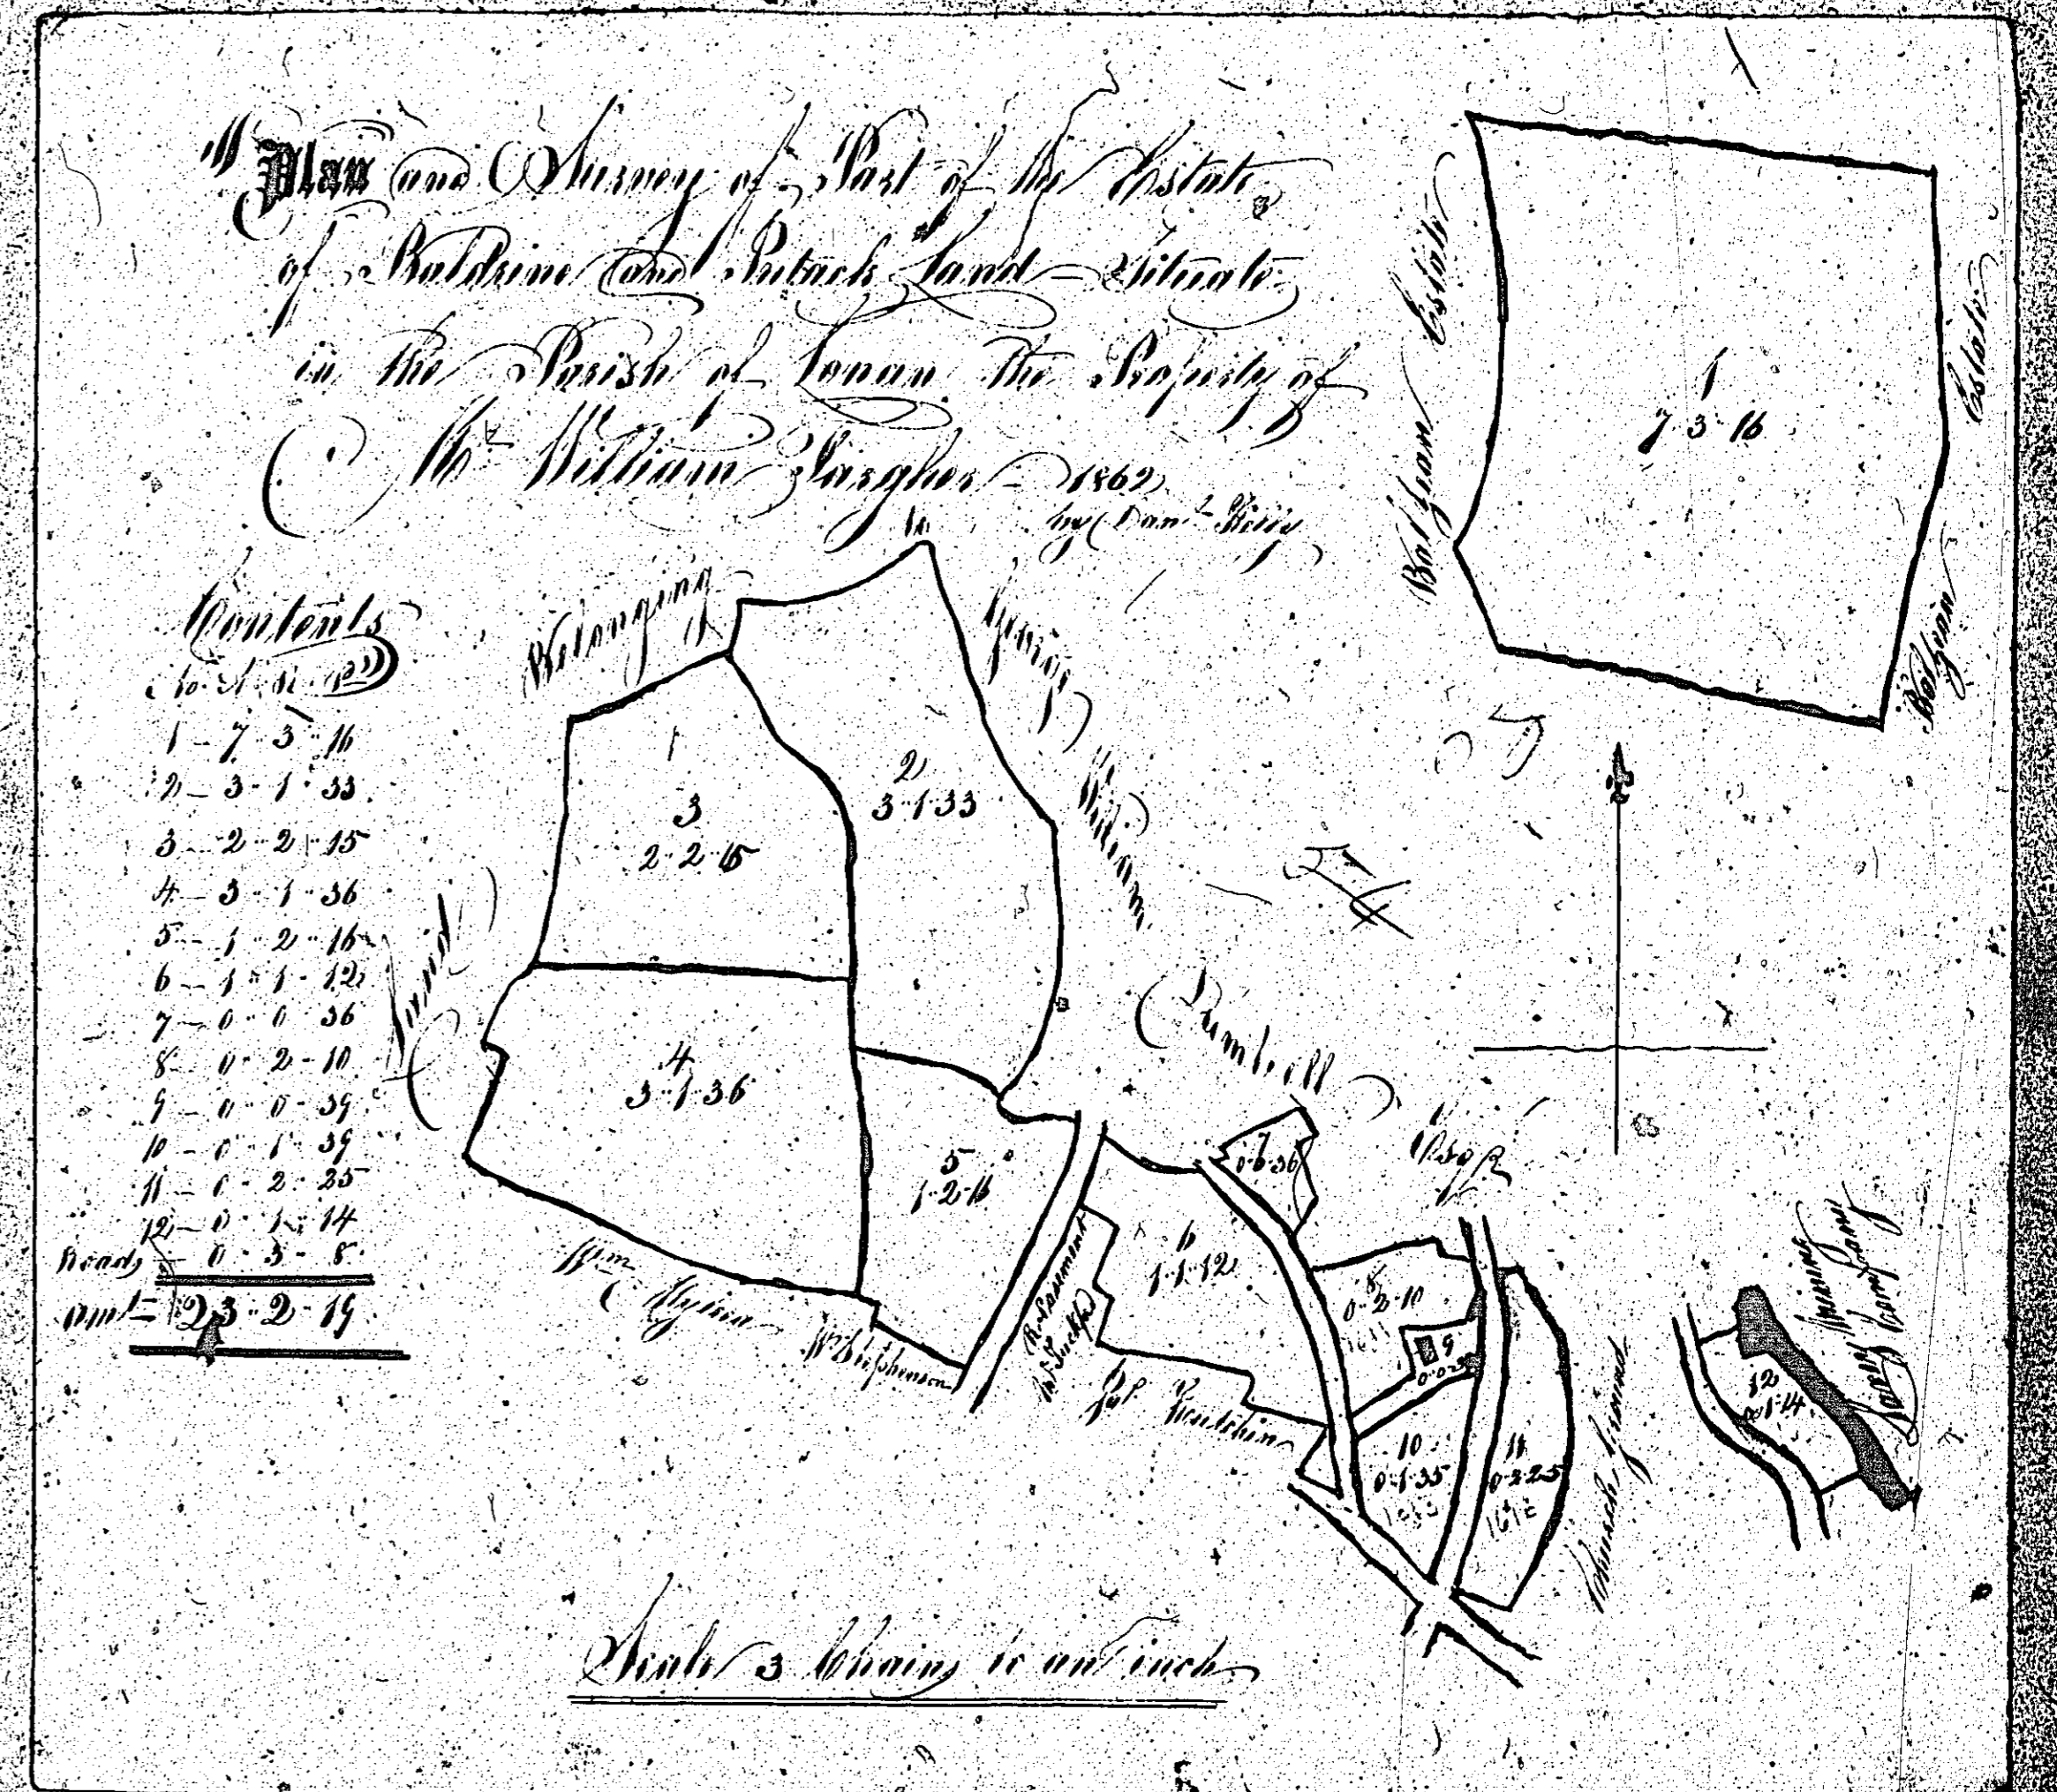 Plan and Survey of Part of the Estate
of Baldrine and Intack Land - Situate
in the Parish of Lonan The Property of
Mr William Fargher - 1862
by Danl Kelly
Contents
No. A. R. P
1 - 7 - 3 - 16
2 - 3 - 1 - 33
3 - 2 - 2 - 15
4 - 3 - 1 - 36
5 - 1 - 2 - 16
6 - 1 - 1 - 12
7 - 0 - 0 - 36
8 - 0 - 2 - 10
9 - 0 - 0 - 39
10 - 0 - 1 - 39
11 - 0 - 2 - 25
12 - 0 - 1 - 14
Roads - 0 - 3 - 8
amt = 23 - 2 - 19
Belonging
George
William
Dumbell
Esqr
Land
Estate
Estate
1
7 3 16
2
3 1 33
3
2 2 15
4
3 1 36
5
1 2 16
6
1 1 12
7
0 0 36
8
0 2 10
9
10
0 1 35
11
0 2 25
12
0 1 14
Wm
Wm Stephenson
Rosamount
Church Ground
Laxey Mining
Company
Scale 3 Chains to an inch